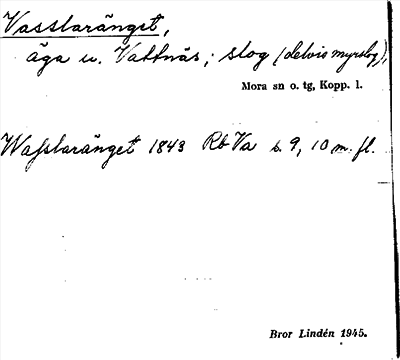 Vasslaränget,
äga u. Vattnäs; slog (delvis myrslog),
Mora sn o. tg, Kopp. l.
Wasslaränget 1843 Rb Va s. 9, 10 m. fl.
Bror Lindén 1945.